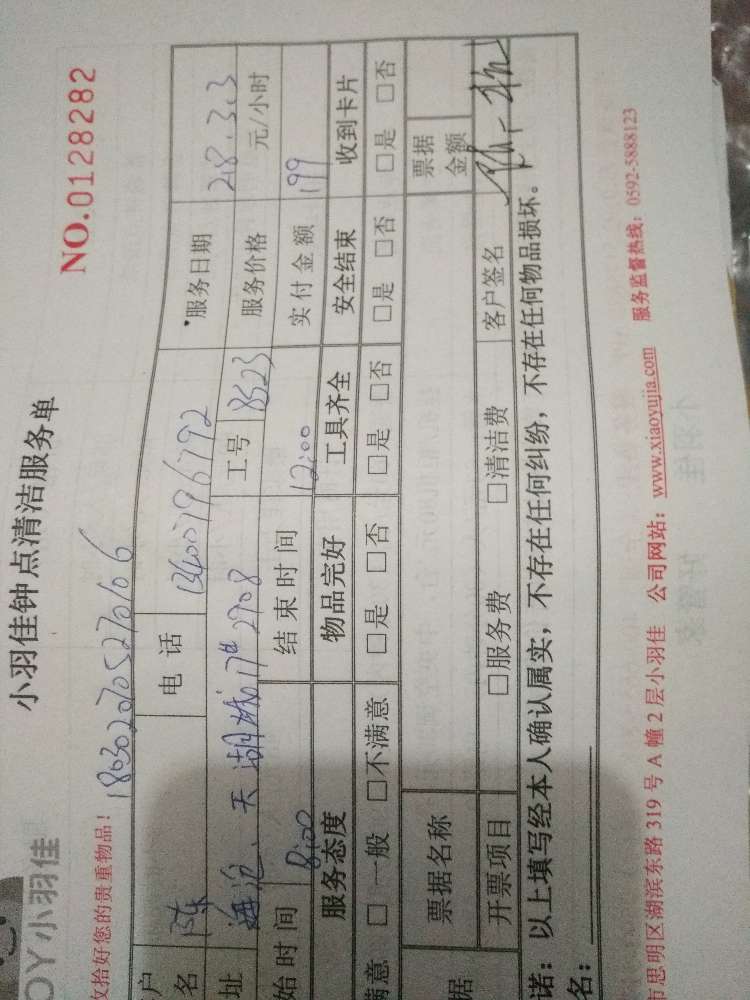 OY小羽佳
小羽佳钟点清洁服务单
NO.0128282
收拾好您的贵重物品！ 180302070105270106
户名 陈 电话 13400796792 服务日期 218.3.3
址 海沧、天湖城17# 2708 工号 8523 服务价格 元/小时
始时间 8:00 结束时间 12:00 实付金额 199
服务态度 物品完好 工具齐全 安全结束 收到卡片
满意 □一般 □不满意 □是 □否 □是 □否 □是 □否 □是 □否
据 票据名称 票据金额
开票项目 □服务费 □清洁费 客户签名
诺：以上填写经本人确认属实，不存在任何纠纷，不存在任何物品损坏。
名：
市思明区湖滨东路 319 号 A 幢 2 层小羽佳 公司网站：www.xiaoyujia.com 服务监督热线：0592-5888123